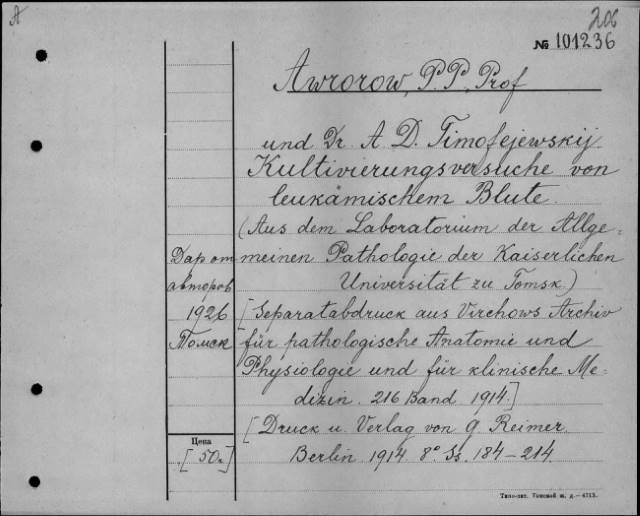 А
206
№ 101236
Awrorow, P. P., Prof
und Dr. A. D. Timofejewskij
Kultivierungsversuche von
leukämischem Blute.
(Aus dem Laboratorium der Allge=
meinen Pathologie der Kaiserlichen
Universität zu Tomsk.)
[Separatabdruck aus Virchows Archiv
für pathologische Anatomie und
Physiologie und für klinische Me=
dizin. 216 Band 1914.]
[Druck u. Verlag von G. Reimer.
Berlin 1914. 8° Ss. 184-214.
Дар от
авторов
1926
Томск
Цена
[50к]
Типо-лит. Томской ж. д.—4713.